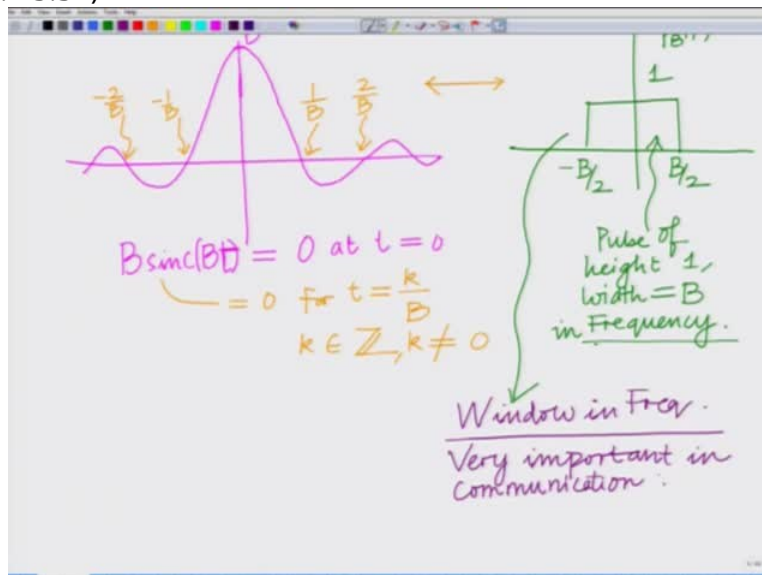 -2/B -1/B 1/B 2/B ⟷
1
-B/2 B/2
B sinc(Bt) = 0 at t = 0
= 0 for t = k/B
k ∈ ℤ, k ≠ 0
Pulse of
height 1,
width = B
in Frequency.
Window in Freq.
Very important in
communication.